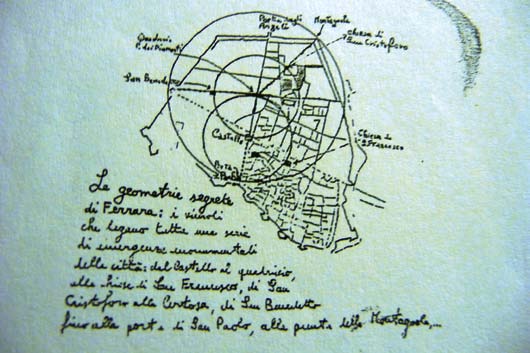 Quadrivio
P. dei Diamanti
Porta degli
Angeli
Montagnola
Chiesa di
San Cristoforo
San Benedetto
Castello
Chiesa di
S. Francesco
Porta
S. Paolo
Le geometrie segrete
di Ferrara: i vincoli
che legano tutta una serie
di emergenze monumentali
della città: dal Castello al quadrivio,
alla chiesa di San Francesco, di San
Cristoforo alla Certosa, di San Benedetto
fino alla porta di San Paolo, alla punta della Montagnola,...